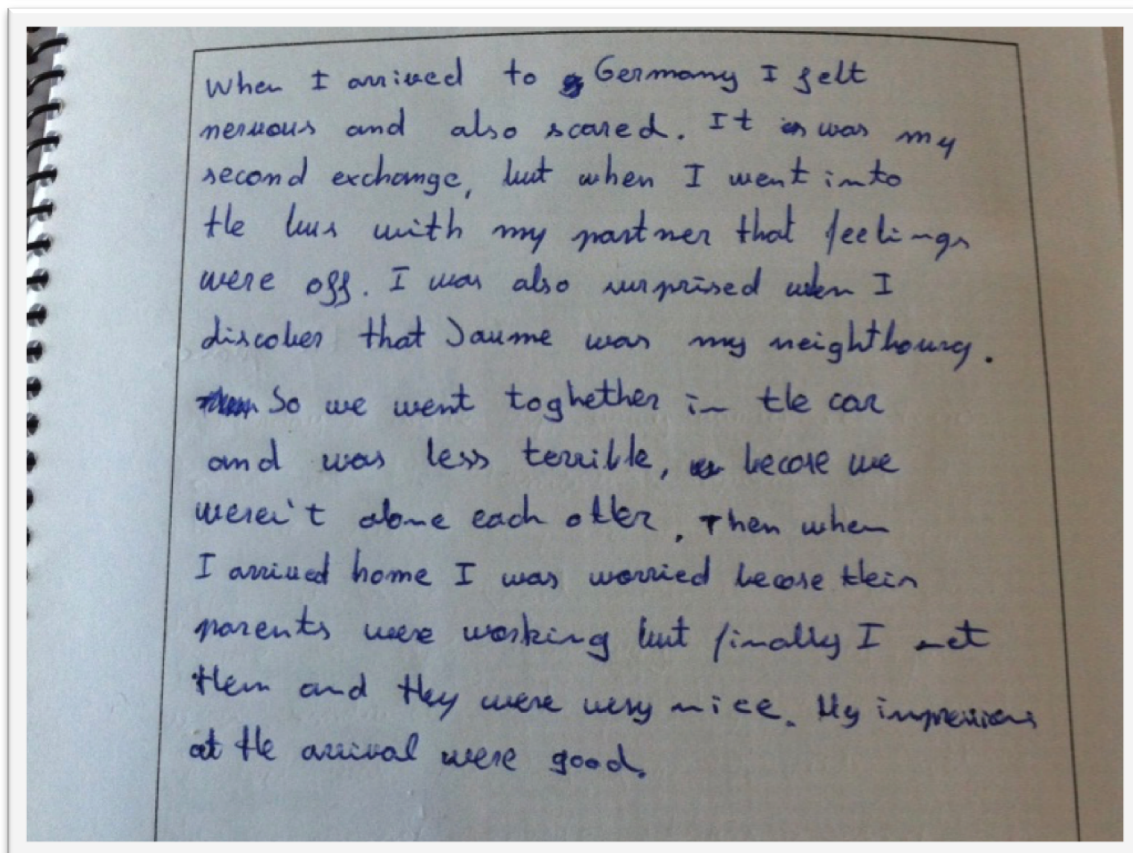 When I arrived to Germany I felt
nervous and also scared. It was my
second exchange, but when I went into
the bus with my partner that feelings
were off. I was also surprised when I
discober that Jaume was my neighthourg.
So we went toghether in the car
and was less terrible, becose we
weren't alone each other. Then when
I arrived home I was worried becose their
parents were working but finally I met
them and they were very nice. My impressions
at the arrival were good.